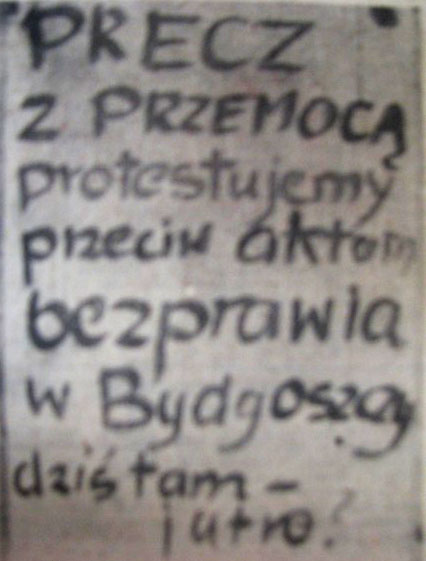 PRECZ
Z PRZEMOCĄ
protestujemy
przeciw aktom
bezprawia
w Bydgoszczy
dziś tam –
jutro?